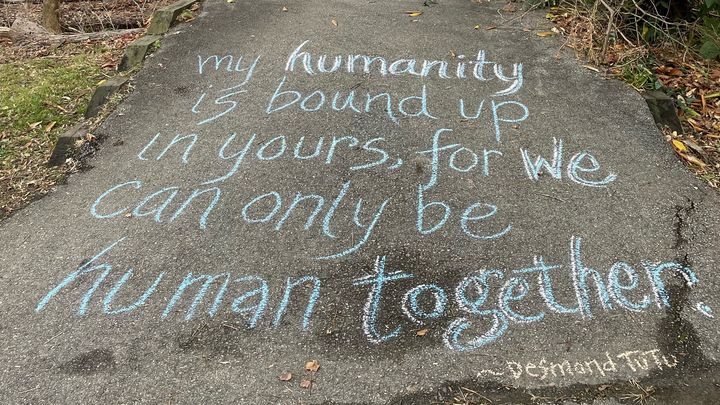 my humanity
is bound up
in yours, for we
can only be
human together.
~Desmond TuTu